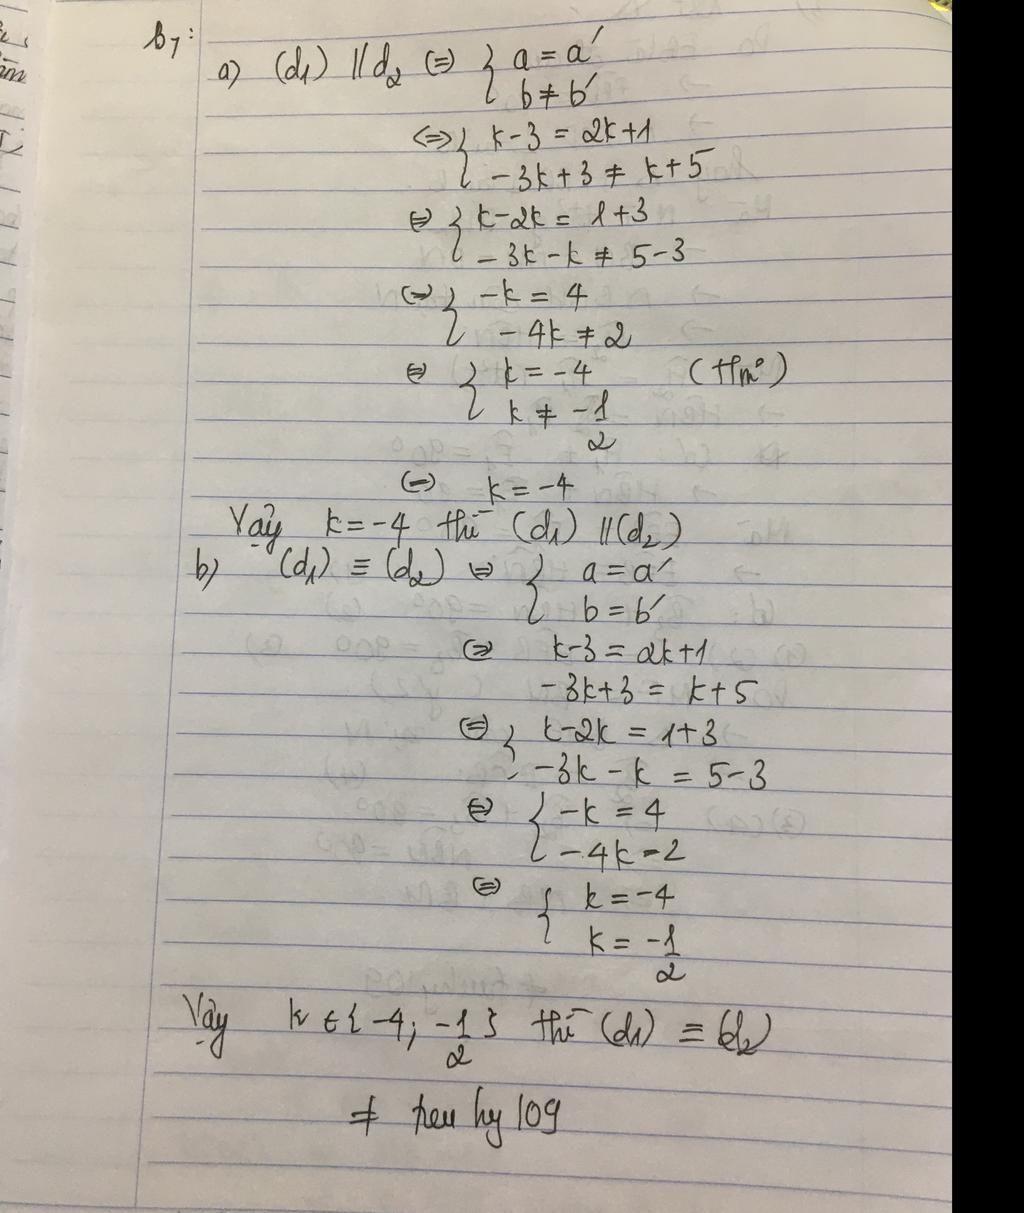 b7:
a) (d1) // d2 (=) { a = a'
b ≠ b'
<=> { k-3 = 2k+1
-3k+3 ≠ k+5
<=> { k-2k = 1+3
-3k-k ≠ 5-3
<=> { -k = 4
-4k ≠ 2
<=> { k = -4 (tm)
k ≠ -1/2
(=) k = -4
Vậy k = -4 thì (d1) // (d2)
b) (d1) ≡ (d2) <=> { a = a'
b = b'
<=> k-3 = 2k+1
-3k+3 = k+5
<=> { k-2k = 1+3
-3k-k = 5-3
<=> { -k = 4
-4k = 2
<=> { k = -4
k = -1/2
Vậy k ∈ {-4; -1/2} thì (d1) ≡ (d2)
≠ hy 109